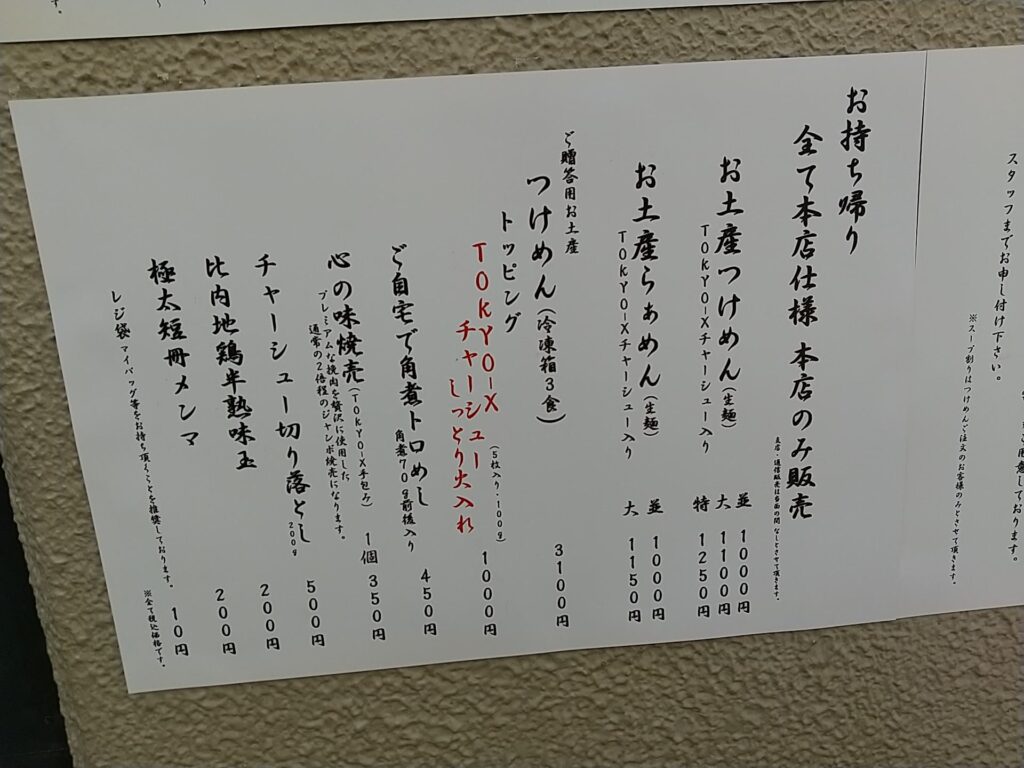 スタッフまでお申し付け下さい。
※スープ割りはつけめんご注文のお客様のみとさせて頂きます。
お持ち帰り
全て本店仕様 本店のみ販売
支店・通信販売は当面の間なしとさせて頂きます。
お土産つけめん(生麺)
TOKYO-Xチャーシュー入り
並 1000円
大 1100円
特 1250円
お土産らぁめん(生麺)
TOKYO-Xチャーシュー入り
並 1000円
大 1150円
ご贈答用お土産
つけめん(冷凍箱3食) 3100円
トッピング
TOKYO-X
チャーシュー
しっとり火入れ
(5枚入り・100g) 1000円
ご自宅で角煮トロめし
角煮70g前後入り 450円
心の味焼売(TOKYO-X手包ケ) 1個 350円
プレミアムな挽肉を贅沢に使用した
通常の2倍程のジャンボ焼売になります。
チャーシュー切り落とし 200g 500円
比内地鶏半熟味玉 200円
極太短冊メンマ 200円
レジ袋 マイバッグ等をお持ち頂くことを推奨しております。 10円
※全て税込価格です。